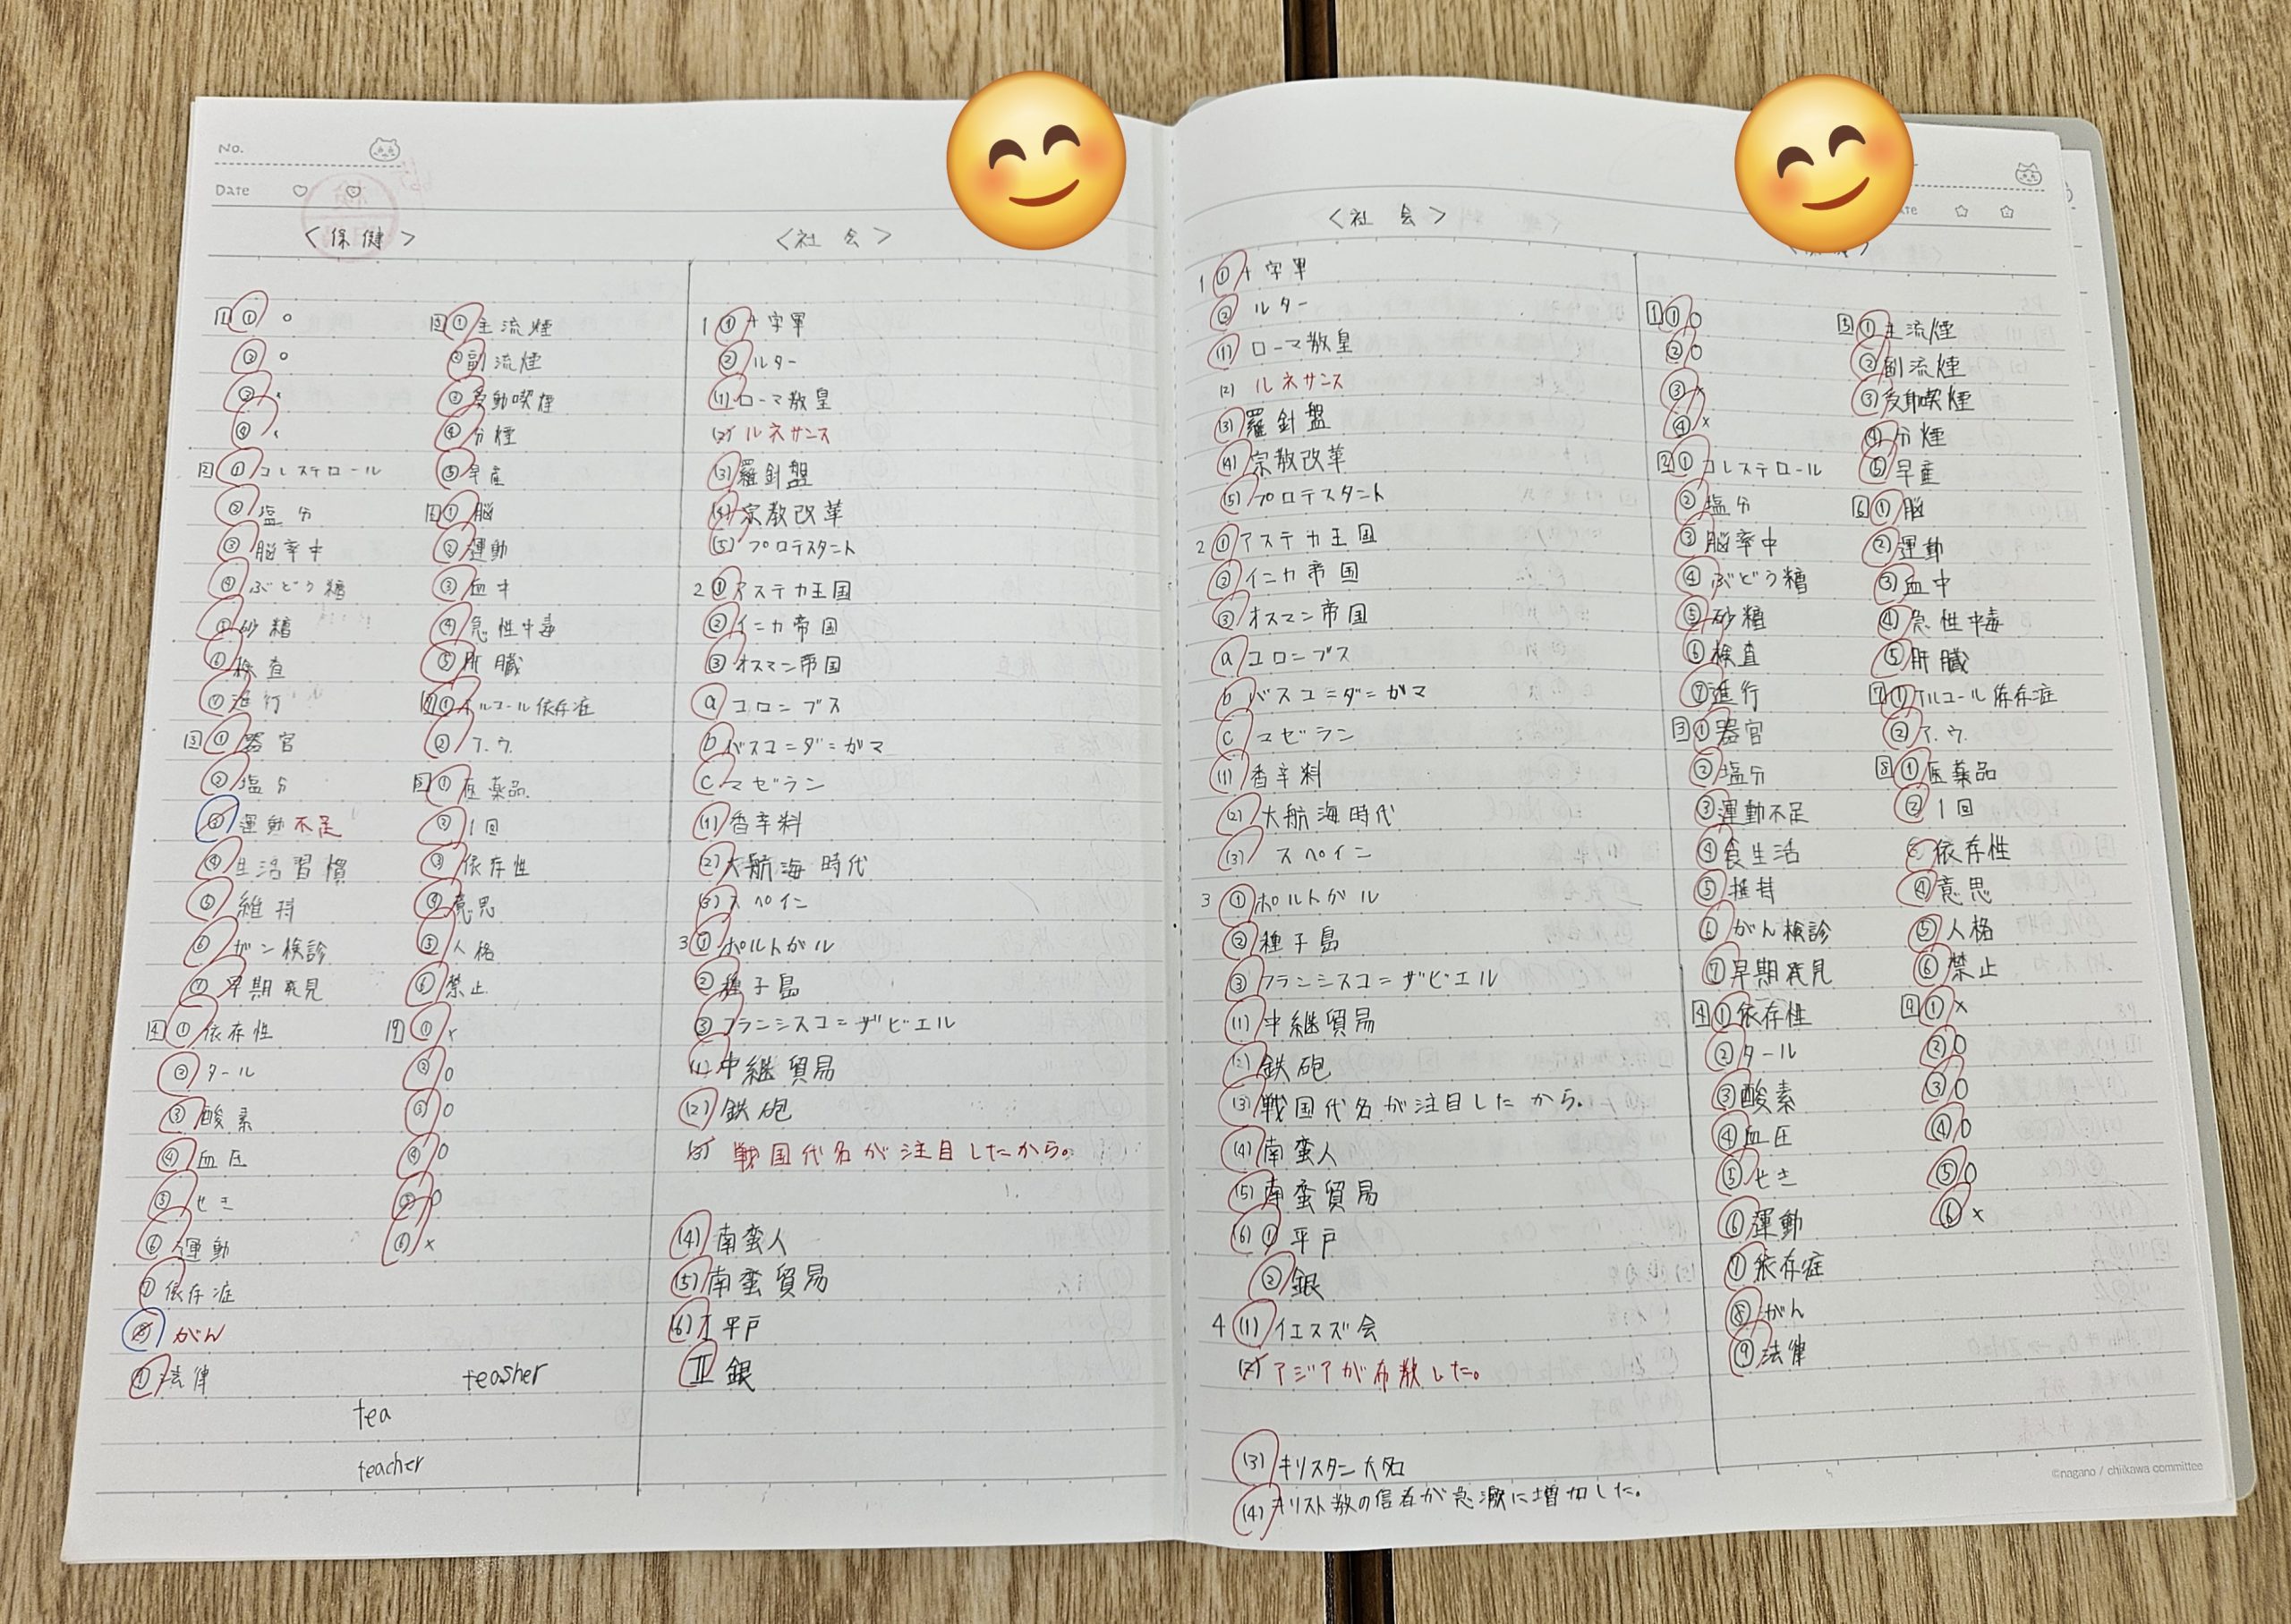 No.
Date
<保健>
① ○
② ○
③ ×
④ ×
2 ① コレステロール
② 塩分
③ 脳卒中
④ ぶどう糖
⑤ 砂糖
⑥ 検査
⑦ 進行
3 ① 器官
② 塩分
③ 運動不足
④ 生活習慣
⑤ 維持
⑥ ガン検診
⑦ 早期発見
4 ① 依存性
② タール
③ 酸素
④ 血圧
⑤ せき
⑥ 運動
⑦ 依存症
⑧ がん
⑨ 法律
tea
teacher
teasher
5 ① 主流煙
② 副流煙
③ 受動喫煙
④ 分煙
⑤ 早産
① 脳
② 運動
③ 血中
④ 急性中毒
⑤ 肝臓
7 ① アルコール依存症
② ア.ウ.
8 ① 医薬品
② 1回
③ 依存性
④ 意思
⑤ 人格
⑥ 禁止
9 ① ×
② ○
③ ○
④ ○
⑤ ○
⑥ ×
<社会>
1 ① 十字軍
② ルター
(1) ローマ教皇
(2) ルネサンス
(3) 羅針盤
(4) 宗教改革
(5) プロテスタント
2 ① アステカ王国
② インカ帝国
③ オスマン帝国
a コロンブス
b バスコ=ダ=ガマ
c マゼラン
(1) 香辛料
(2) 大航海時代
(3) スペイン
3 ① ポルトガル
② 種子島
③ フランシスコ=ザビエル
(1) 中継貿易
(2) 鉄砲
(3) 戦国代名が注目したから。
(4) 南蛮人
(5) 南蛮貿易
(6) 平戸
Ⅱ 銀
<社会>
1 ① 十字軍
② ルター
(1) ローマ教皇
(2) ルネサンス
(3) 羅針盤
(4) 宗教改革
(5) プロテスタント
2 ① アステカ王国
② インカ帝国
③ オスマン帝国
a コロンブス
b バスコ=ダ=ガマ
c マゼラン
(1) 香辛料
(2) 大航海時代
(3) スペイン
3 ① ポルトガル
② 種子島
③ フランシスコ=ザビエル
(1) 中継貿易
(2) 鉄砲
(3) 戦国代名が注目したから。
(4) 南蛮人
(5) 南蛮貿易
(6) ① 平戸
② 銀
4 (1) イエズス会
(2) アジアが布教した。
(3) キリスタン大名
(4) キリスト教の信者が急激に増加した。
1 ① ○
② ○
③ ×
④ ×
2 ① コレステロール
② 塩分
③ 脳卒中
④ ぶどう糖
⑤ 砂糖
⑥ 検査
⑦ 進行
3 ① 器官
② 塩分
③ 運動不足
④ 食生活
⑤ 維持
⑥ がん検診
⑦ 早期発見
4 ① 依存性
② タール
③ 酸素
④ 血圧
⑤ せき
⑥ 運動
⑦ 依存症
⑧ がん
⑨ 法律
5 ① 主流煙
② 副流煙
③ 受動喫煙
④ 分煙
⑤ 早産
6 ① 脳
② 運動
③ 血中
④ 急性中毒
⑤ 肝臓
7 ① アルコール依存症
② ア.ウ.
8 ① 医薬品
② 1回
③ 依存性
④ 意思
⑤ 人格
⑥ 禁止
9 ① ×
② ○
③ ○
④ ○
⑤ ○
⑥ ×
©nagano / chiikawa committee